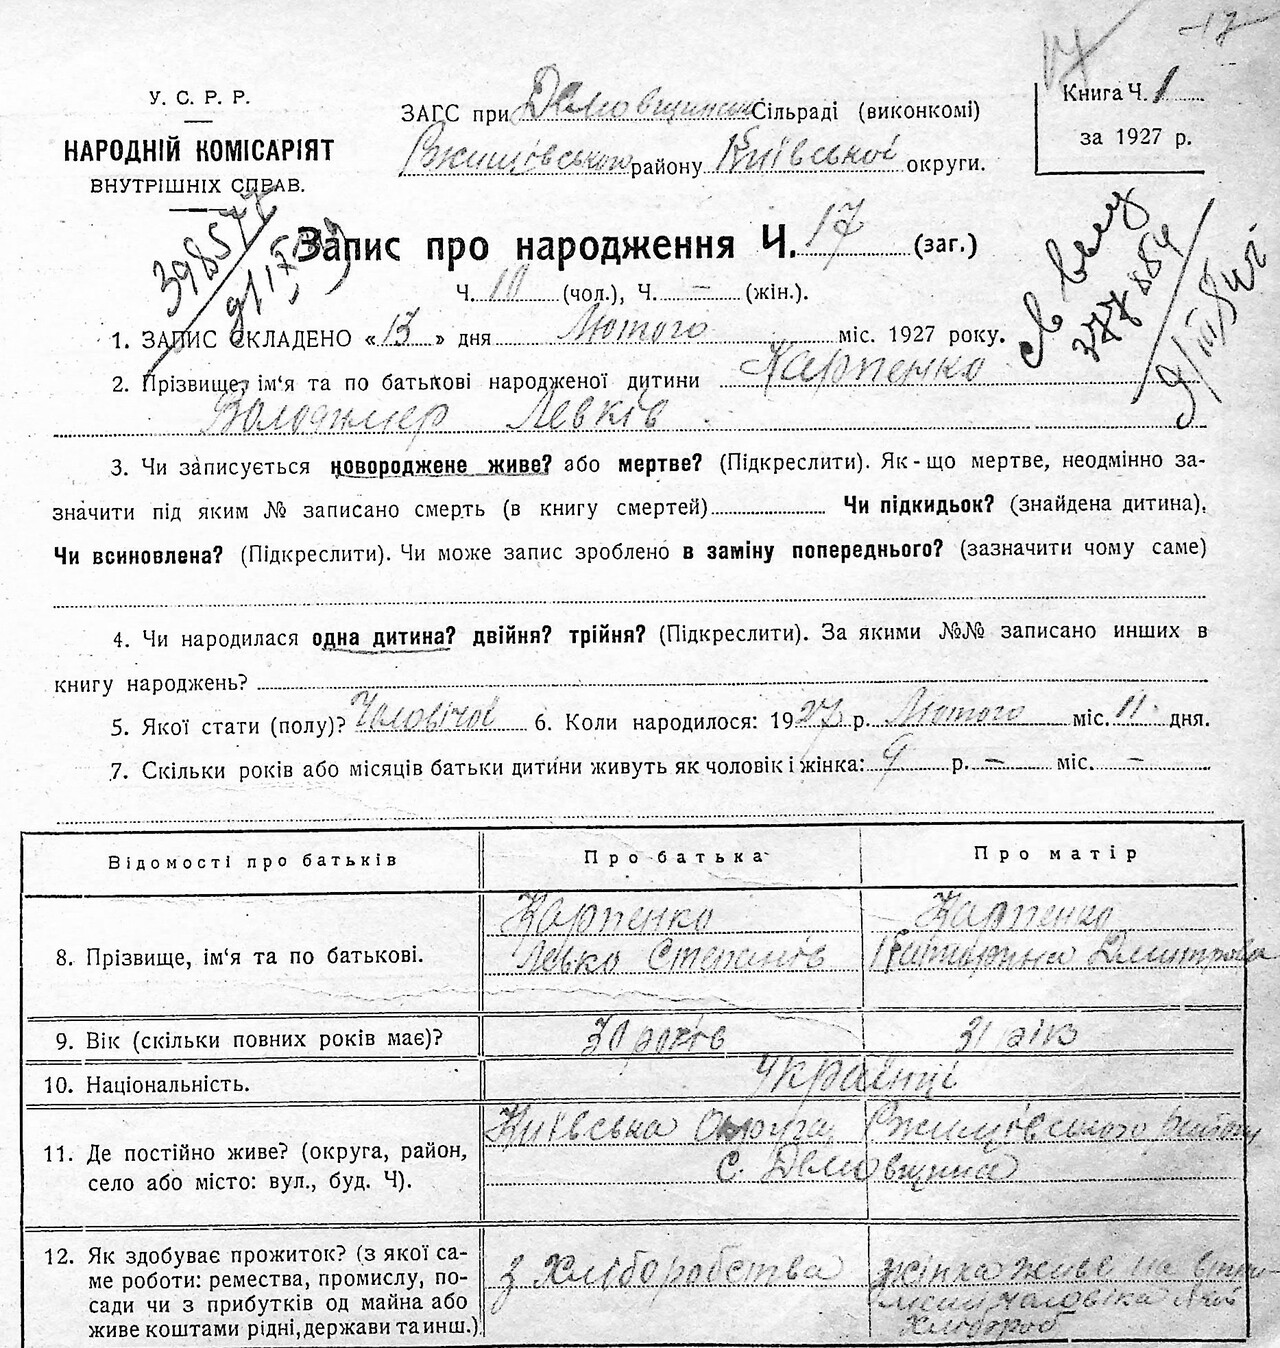 17
-17-
У. С. Р. Р.
НАРОДНІЙ КОМІСАРІЯТ
ВНУТРІШНІХ СПРАВ.
ЗАГС при Демовщинській Сільраді (виконкомі)
Ржищівського району Київської округи.
Книга Ч. 1
за 1927 р.
Запис про народження Ч. 17 (заг.)
Ч. 10 (чол.), Ч. – (жін.).
1. ЗАПИС СКЛАДЕНО «13» дня Лютого міс. 1927 року.
2. Прізвище, ім'я та по батькові народженої дитини Карпенко
Володимер Левків
3. Чи записується новороджене живе? або мертве? (Підкреслити). Як-що мертве, неодмінно за-
значити під яким № записано смерть (в книгу смертей) Чи підкидьок? (знайдена дитина).
Чи всиновлена? (Підкреслити). Чи може запис зроблено в заміну попереднього? (зазначити чому саме)
4. Чи народилася одна дитина? двійня? трійня? (Підкреслити). За якими №№ записано инших в
книгу народжень?
5. Якої стати (полу)? Чоловічої 6. Коли народилося: 1927 р. Лютого міс. 11 дня.
7. Скільки років або місяців батьки дитини живуть як чоловік і жінка: 9 р. – міс. –
Відомості про батьків Про батька Про матір
8. Прізвище, ім'я та по батькові. Карпенко Карпенко
Левко Степанів Катерина Дмитрова
9. Вік (скільки повних років має)? 30 років 31 рік
10. Національність. Українці
11. Де постійно живе? (округа, район,
село або місто: вул., буд. Ч).
Київська Округа, Ржищівського району
с. Демовщина
12. Як здобуває прожиток? (з якої са-
ме роботи: ремества, промислу, по-
сади чи з прибутків од майна або
живе коштами рідні, держави та инш.)
з Хліборобства
жінка живе на
чоловіка який
хлібороб